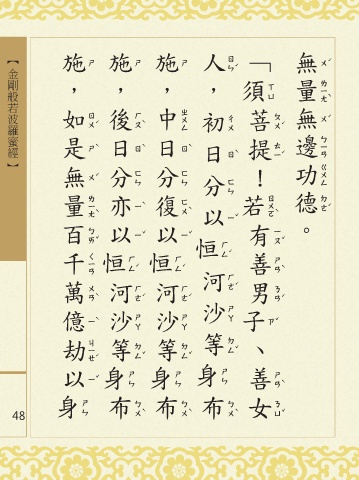 無量無邊功德。
「須菩提！若有善男子、善女
人，初日分以恒河沙等身布
施，中日分復以恒河沙等身布
施，後日分亦以恒河沙等身布
施，如是無量百千萬億劫以身
【金剛般若波羅蜜經】
48